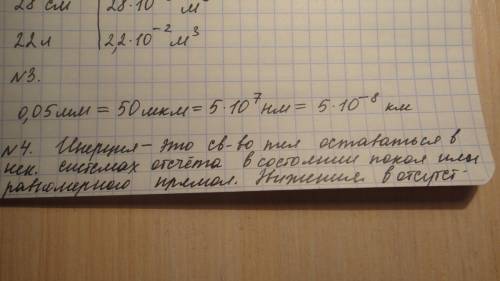 28 см | 28·10 м
22 л | 2,2·10⁻² м³
N3.
0,05 мм = 50 мкм = 5·10⁷ нм = 5·10⁻⁸ км
N4. Инерция – это св-во тел оставаться в
нек. системах отсчёта в состоянии покоя или
равномерного прямол. движения в отсутст-